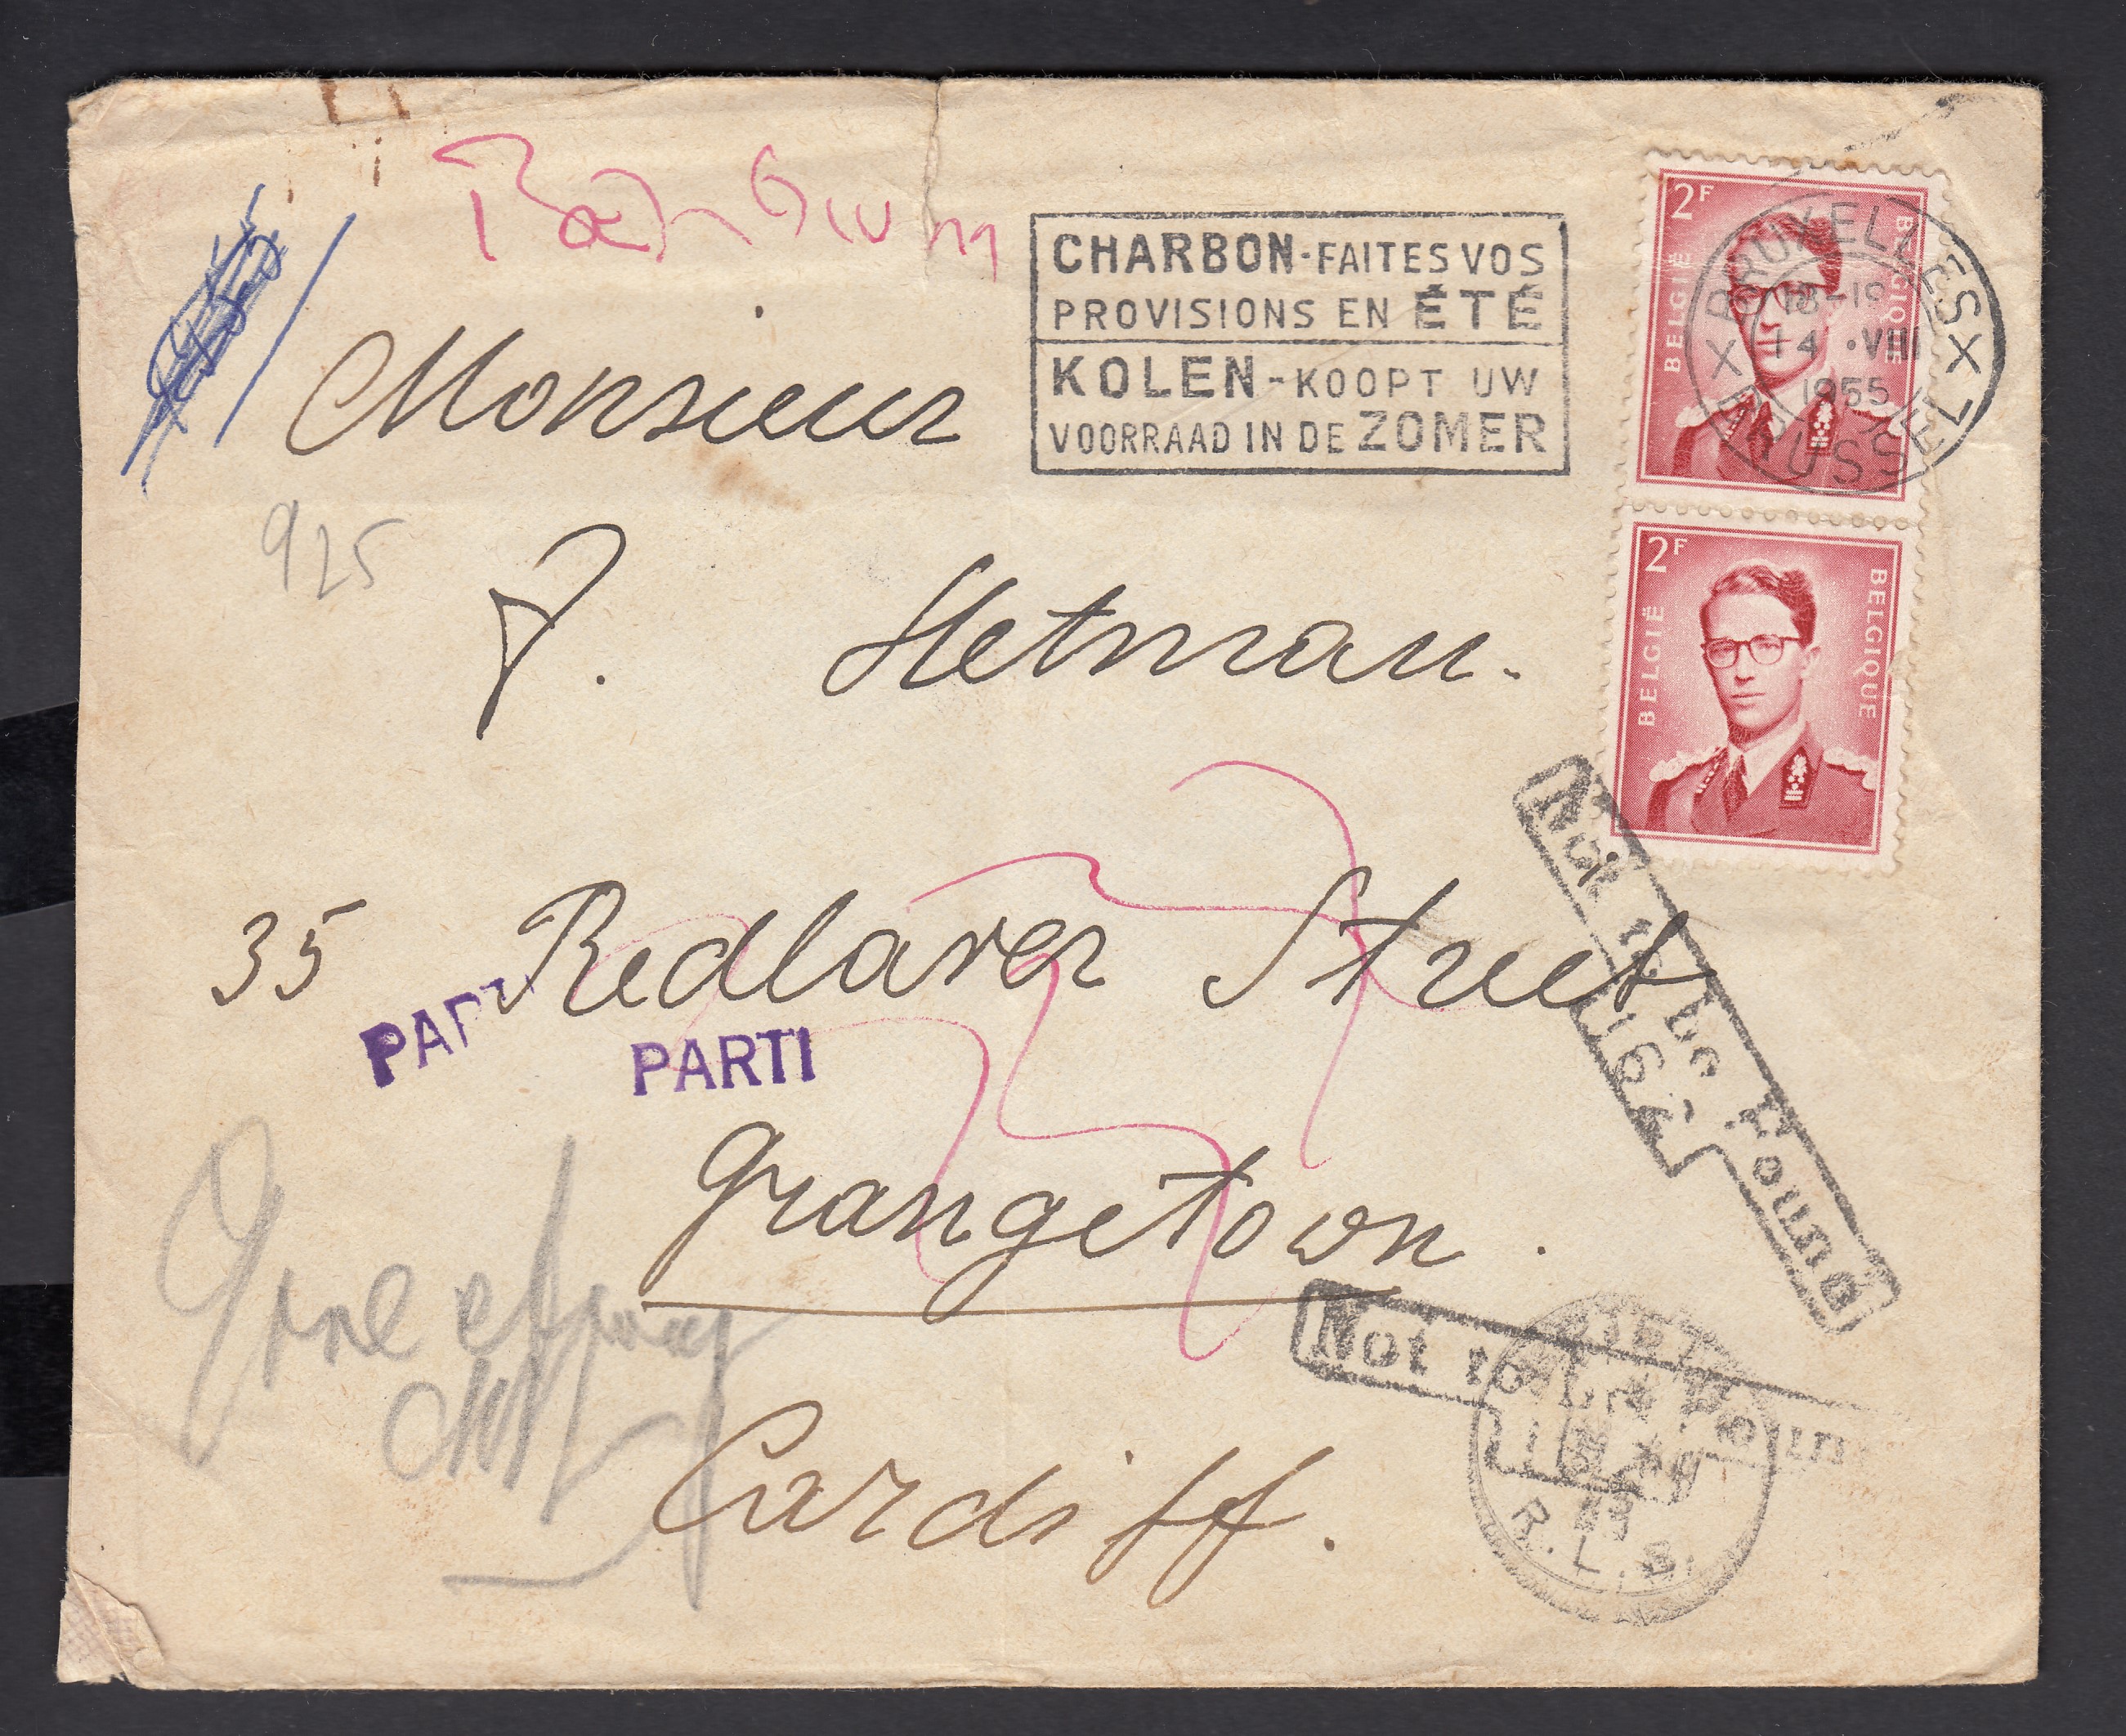 CHARBON-FAITES VOS
PROVISIONS EN ÉTÉ
KOLEN-KOOPT UW
VOORRAAD IN DE ZOMER
2F
BELGIË
BELGIQUE
BRUXELLES X
18-19
VIII
1955
X BRUSSEL
2F
BELGIË
BELGIQUE
Monsieur
925
P. Hetman.
35 Redlaver Street
PARTI
PARTI
Grangetown.
Cardiff.
Not to be Found
Not to be Foun
R.L.B.